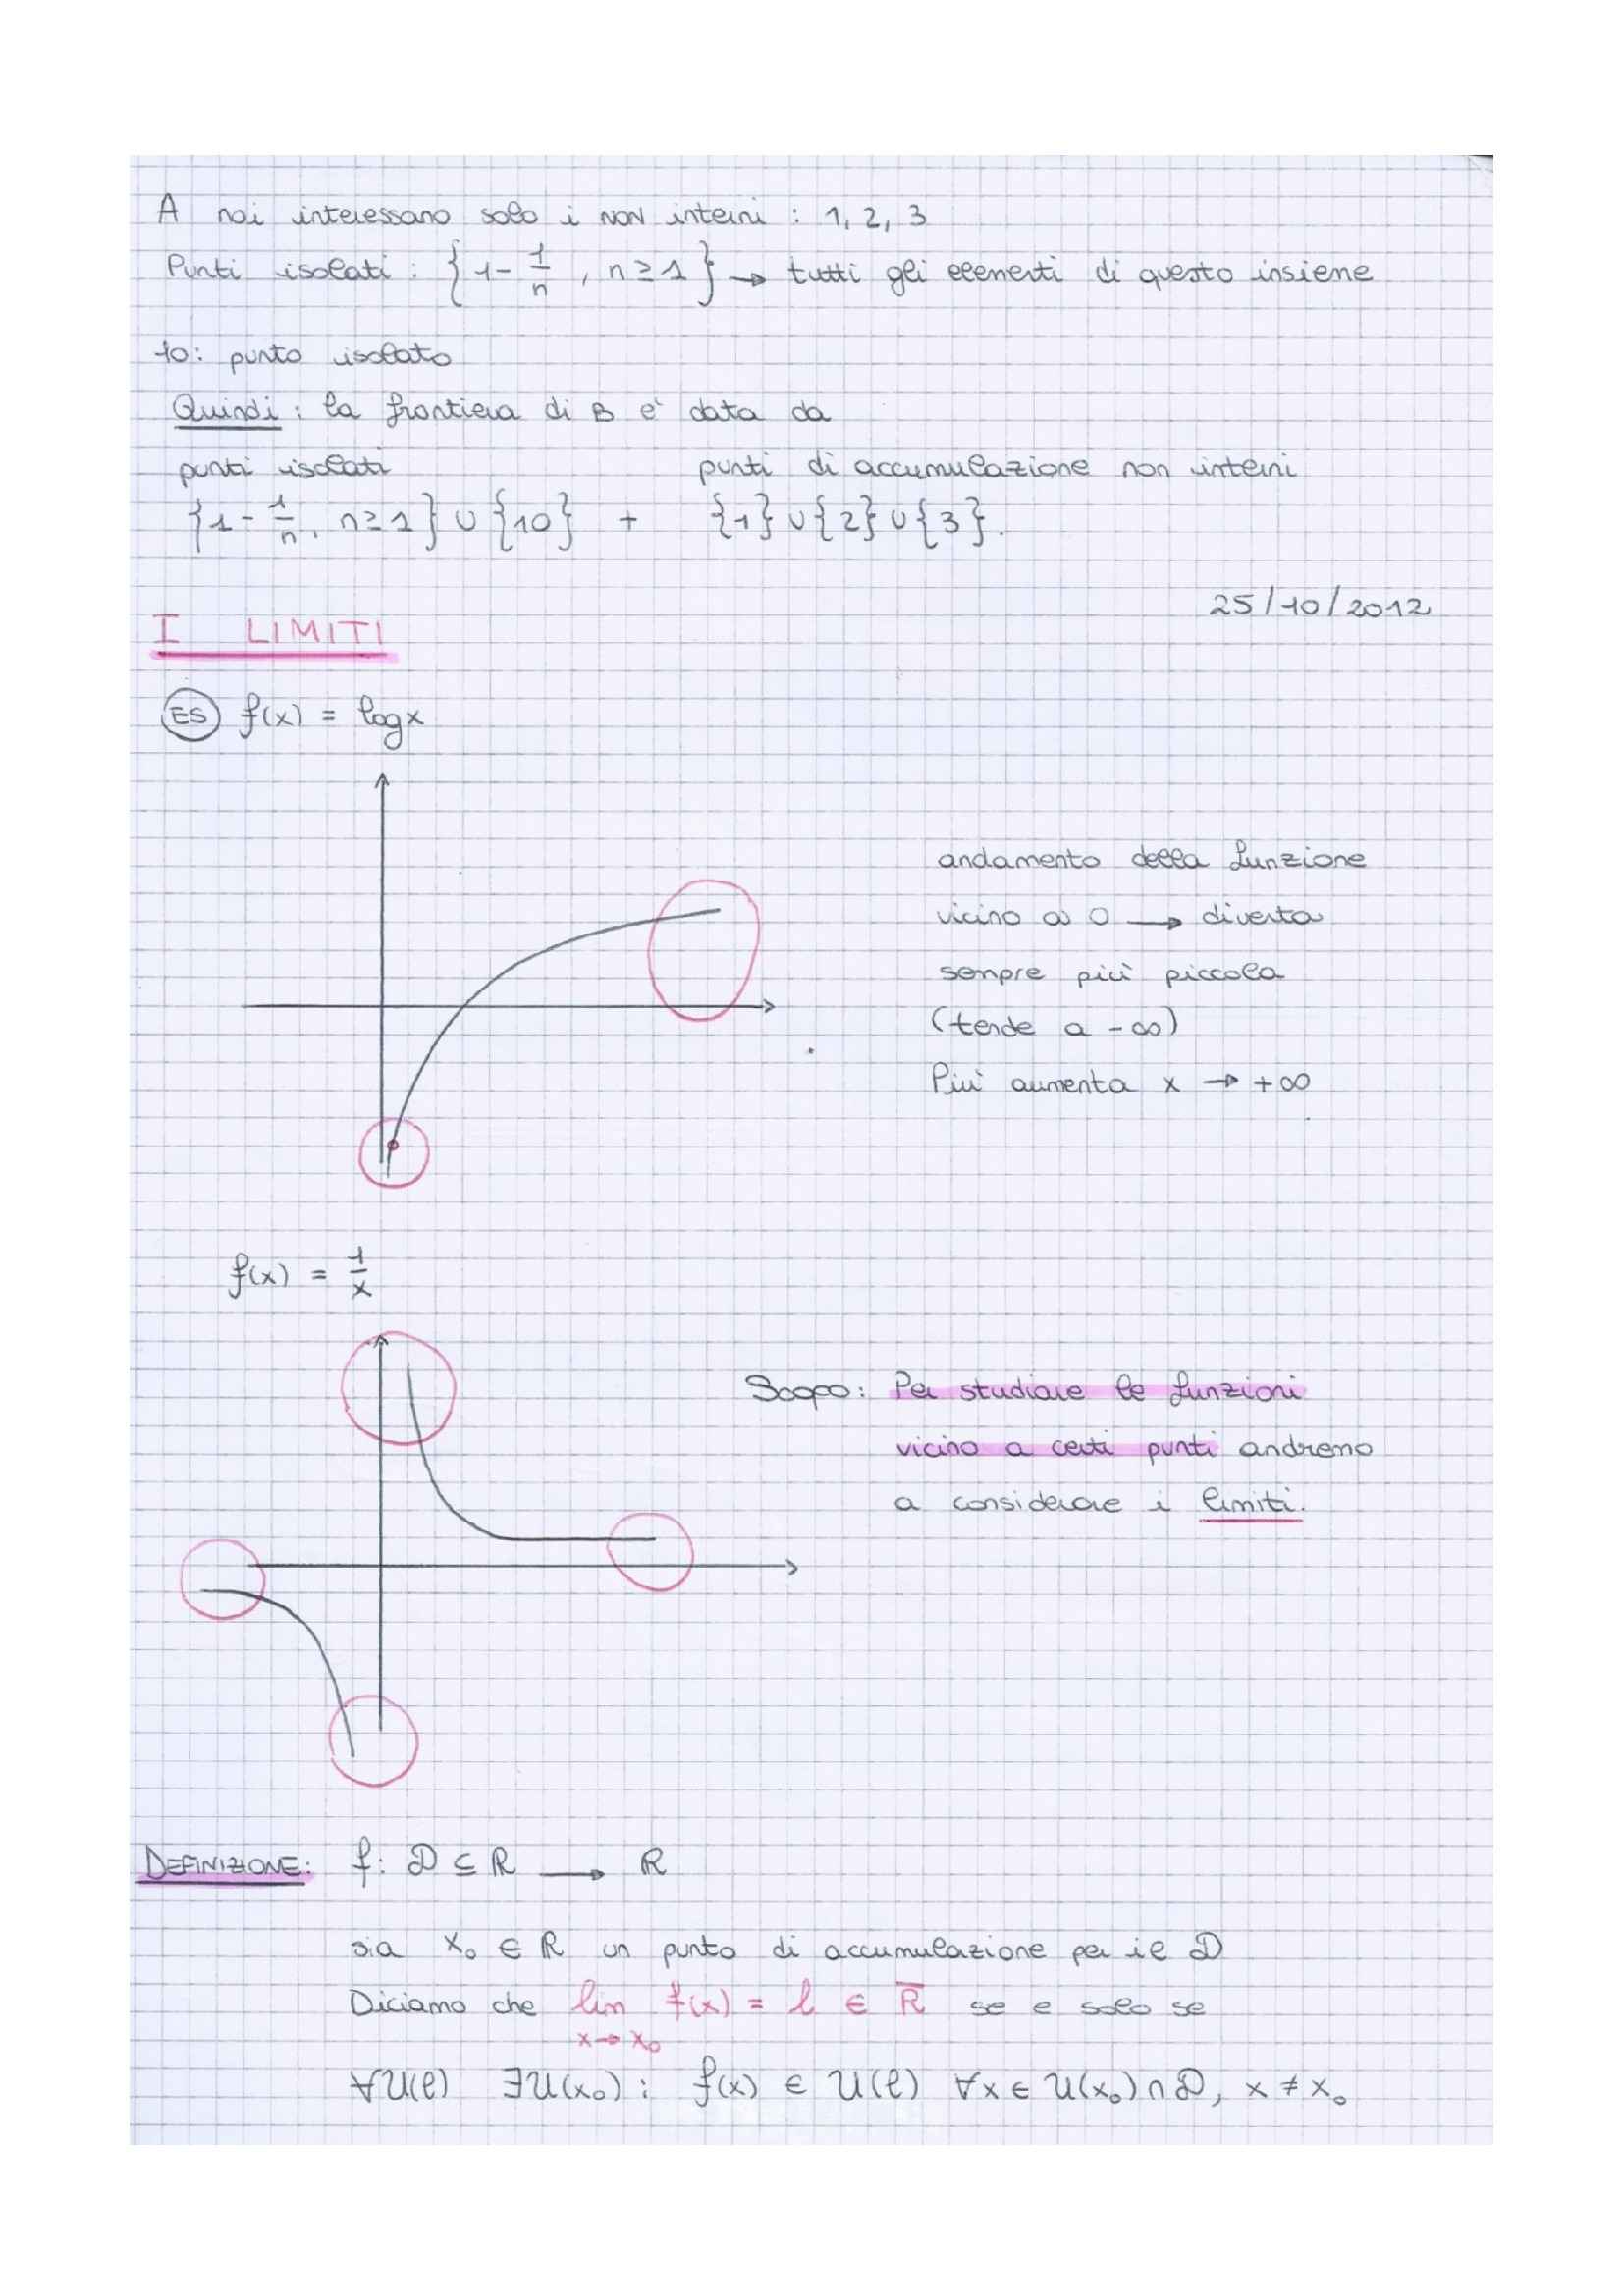 A noi interessano solo i NON interni : 1, 2, 3
Punti isolati : {1 - 1/n , n ≥ 1} → tutti gli elementi di questo insieme
10: punto isolato
Quindi : la frontiera di B e' data da
punti isolati punti di accumulazione non interni
{1 - 1/n, n ≥ 1} ∪ {10} + {1} ∪ {2} ∪ {3}.
25/10/2012
I LIMITI
ES f(x) = log x
andamento della funzione
vicino a 0 → diventa
sempre più piccola
(tende a -∞)
Piu' aumenta x → +∞
f(x) = 1/x
Scopo: Per studiare le funzioni
vicino a certi punti andremo
a considerare i limiti.
DEFINIZIONE: f: D ⊆ ℝ → ℝ
sia x₀ ∈ ℝ un punto di accumulazione per il D
Diciamo che lim f(x) = l ∈ ℝ̅ se e solo se
x → x₀
∀U(l) ∃U(x₀) : f(x) ∈ U(l) ∀x ∈ U(x₀) ∩ D, x ≠ x₀